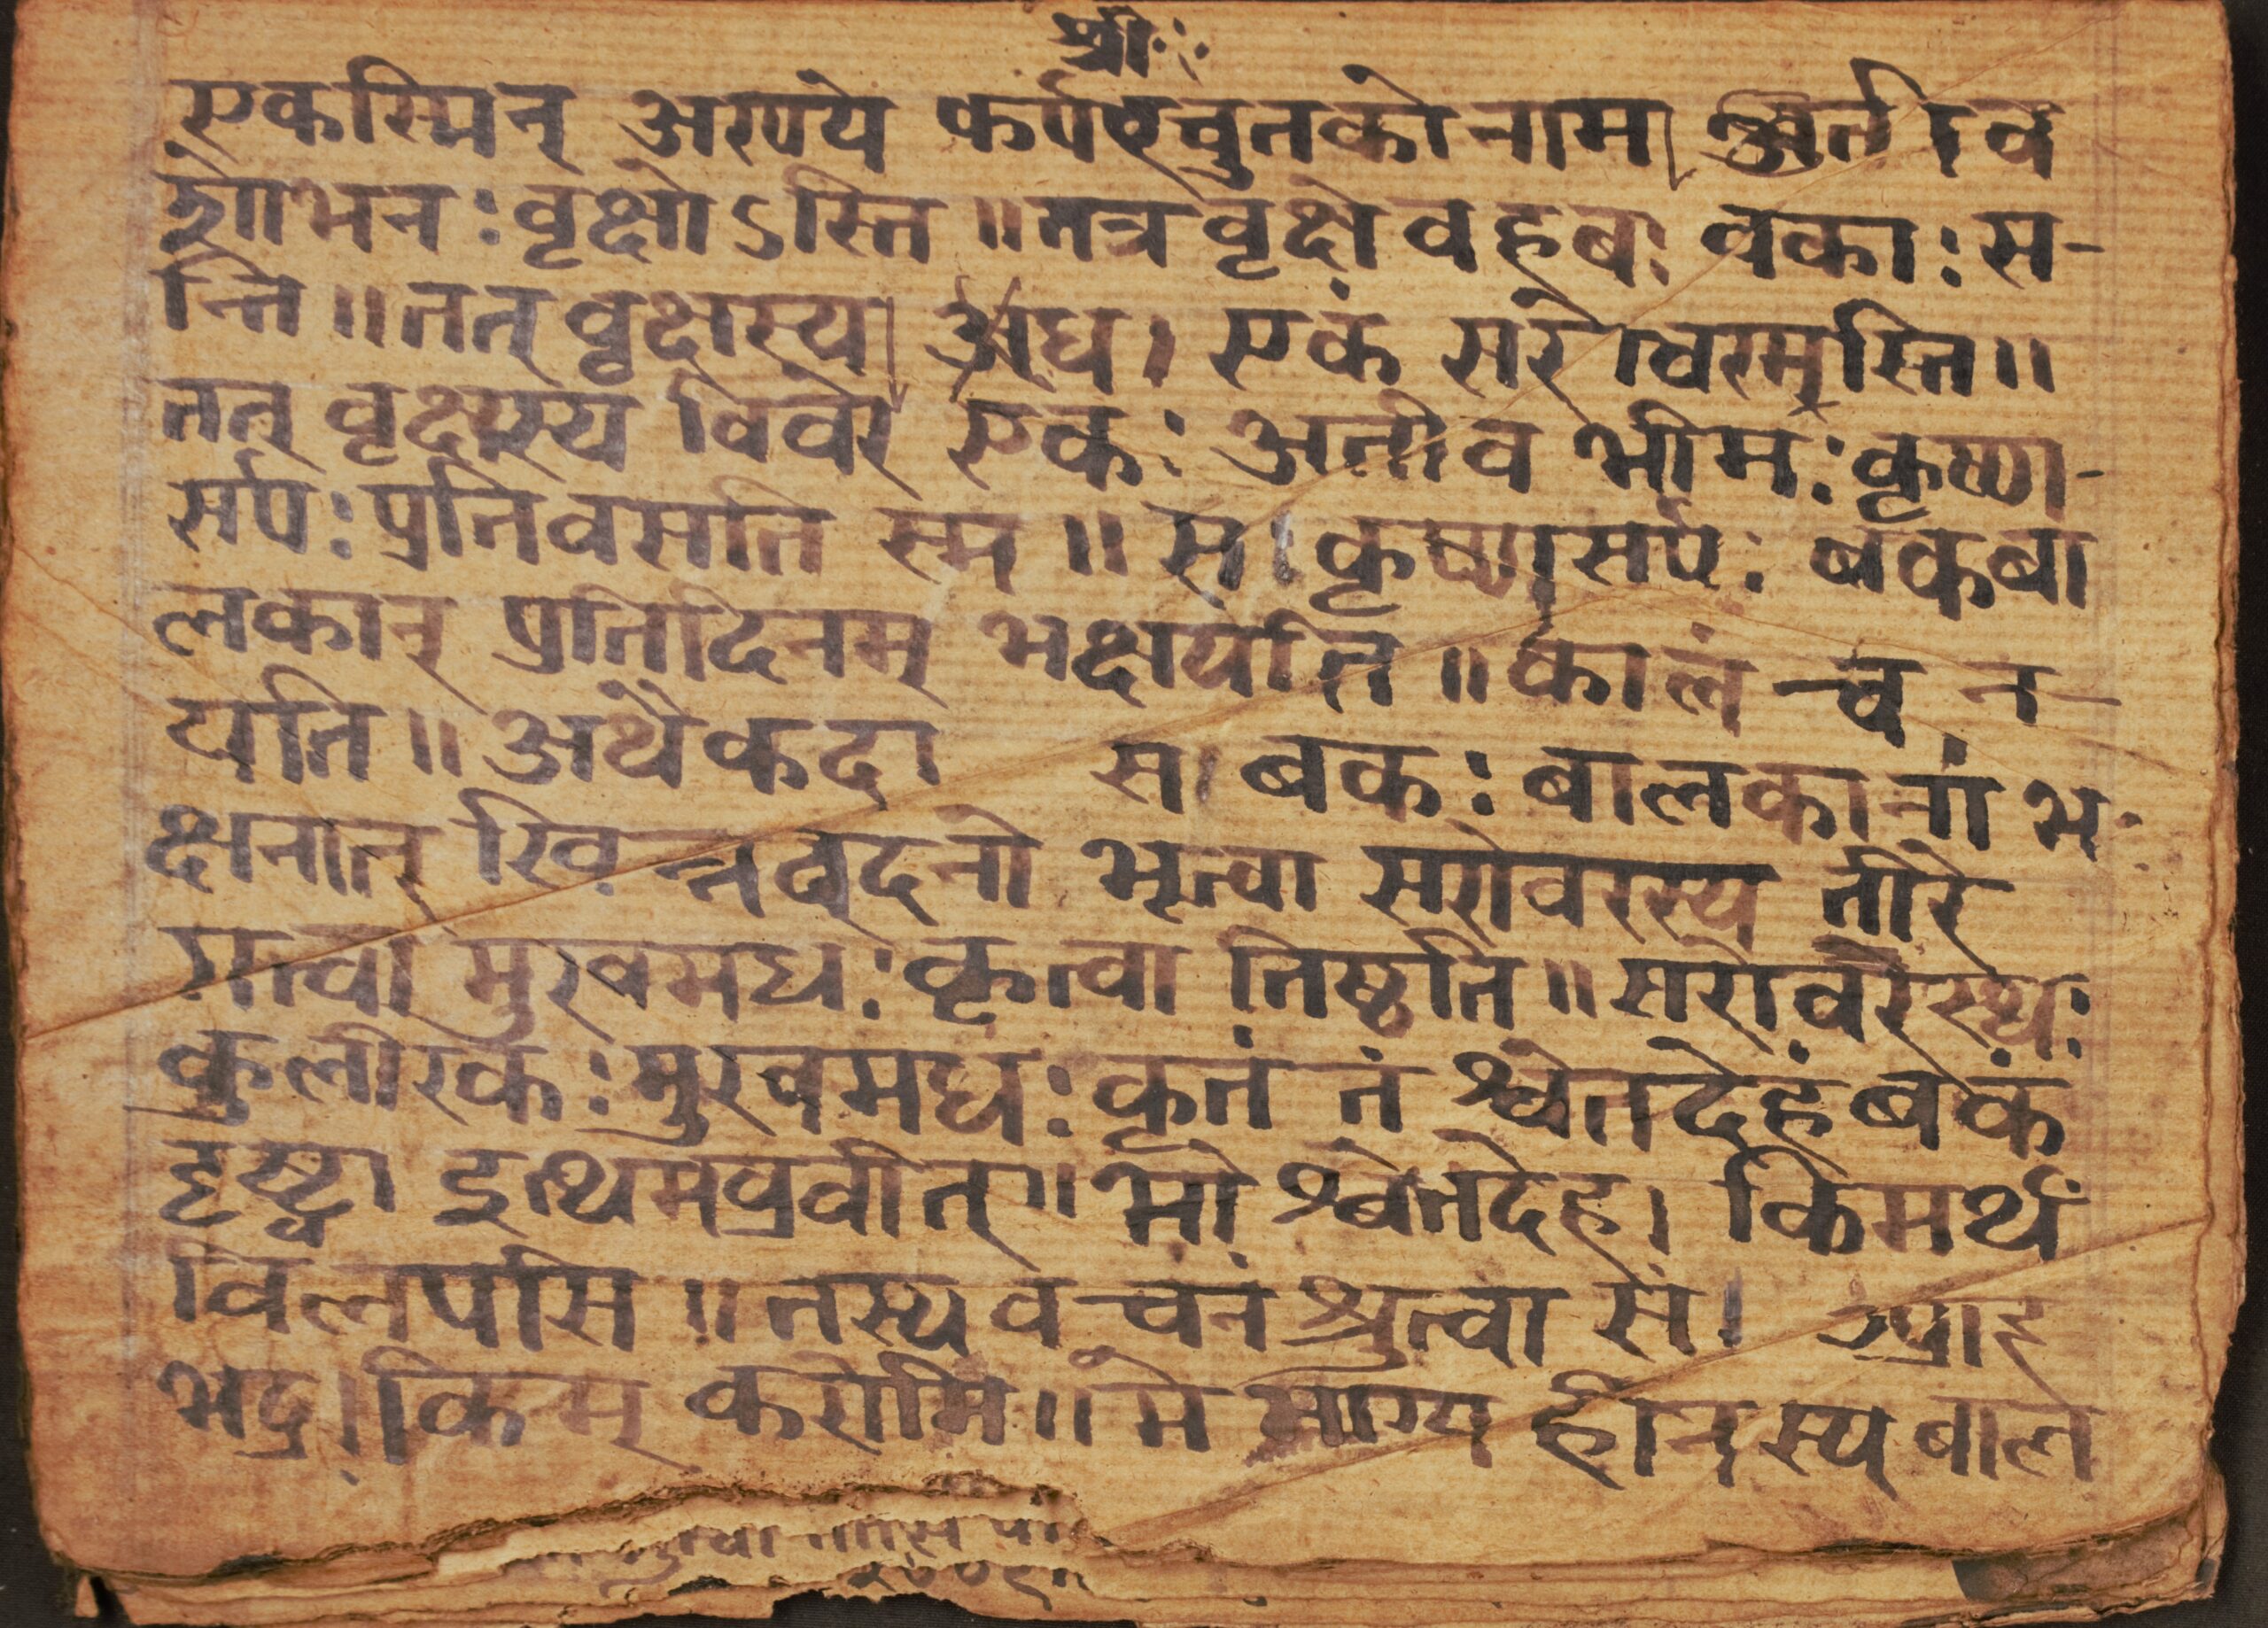 श्रीः
एकस्मिन् अरण्ये नाम अतीव
शोभनः वृक्षोऽस्ति ॥ तत्र वृक्षे वहवः वकाः स-
न्ति ॥ तत् वृक्षस्य अध। एकं सरोवरमस्ति ॥
तत् वृक्षस्य विवरे एकः अतीव भीमः कृष्ण-
सर्पः प्रतिवसति स्म ॥ स कृष्णसर्पः बकबा
लकान् प्रतिदिनम् भक्षयति ॥ कालं च न-
यति ॥ अथैकदा स बकः बालकानां भ-
क्षनात् खिन्नवदनो भूत्वा सरोवरस्य तीरे
गत्वा मुखमधः कृत्वा तिष्ठति ॥ सरोवरेस्थः
कुलीरकः मुखमधः कृतं तं श्वेतदेहं बकं
दृष्ट्वा इत्थमब्रवीत् ॥ भो श्वेतदेह। किमर्थं
विलपसि ॥ तस्य वचनं श्रुत्वा स। प्राह
भद्र। किम् करोमि ॥ मे भाग्य हीनस्य बाल